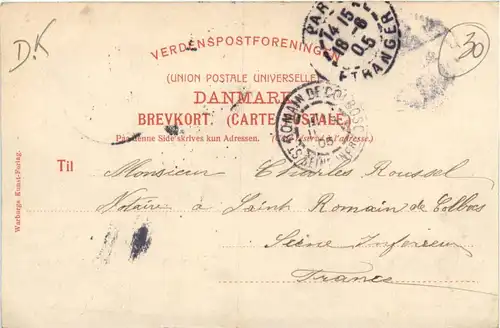 D.K
30
PARIS ETRANGER
14 15
18 - 6
05
VERDENSPOSTFORENINGEN
(UNION POSTALE UNIVERSELLE)
DANMARK
BREVKORT. (CARTE POSTALE.)
Paa denne Side skrives kun Adressen.
ROMAIN DE COLBOSC
Til
Monsieur Charles Roussel
Notaire à Saint Romain de Colbos
Seine Inferieur
France
Warburgs Kunst-Forlag.